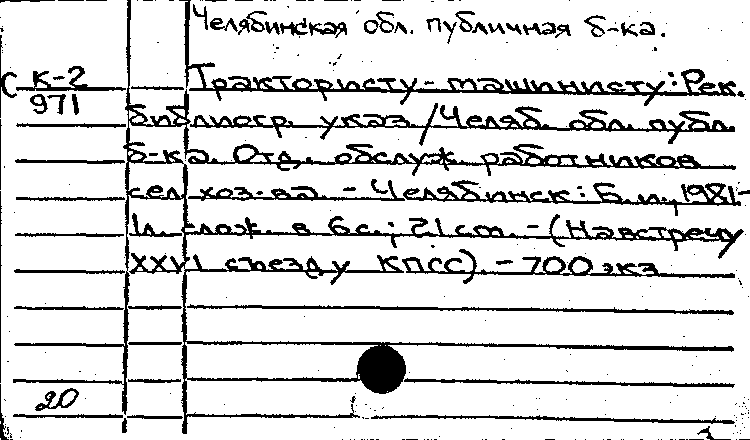 Челябинская обл. публичная б-ка.
С К-2
971
Трактористу-машинисту: Рек.
библиогр. указ / Челяб. обл. публ.
б-ка. Отд. обслуж. работников
сел. хоз-ва. - Челябинск: Б. и., 1981.-
1л. слож. в 6с.; 21 cm. - (Навстречу
XXVI съезду КПСС). - 700 экз
20